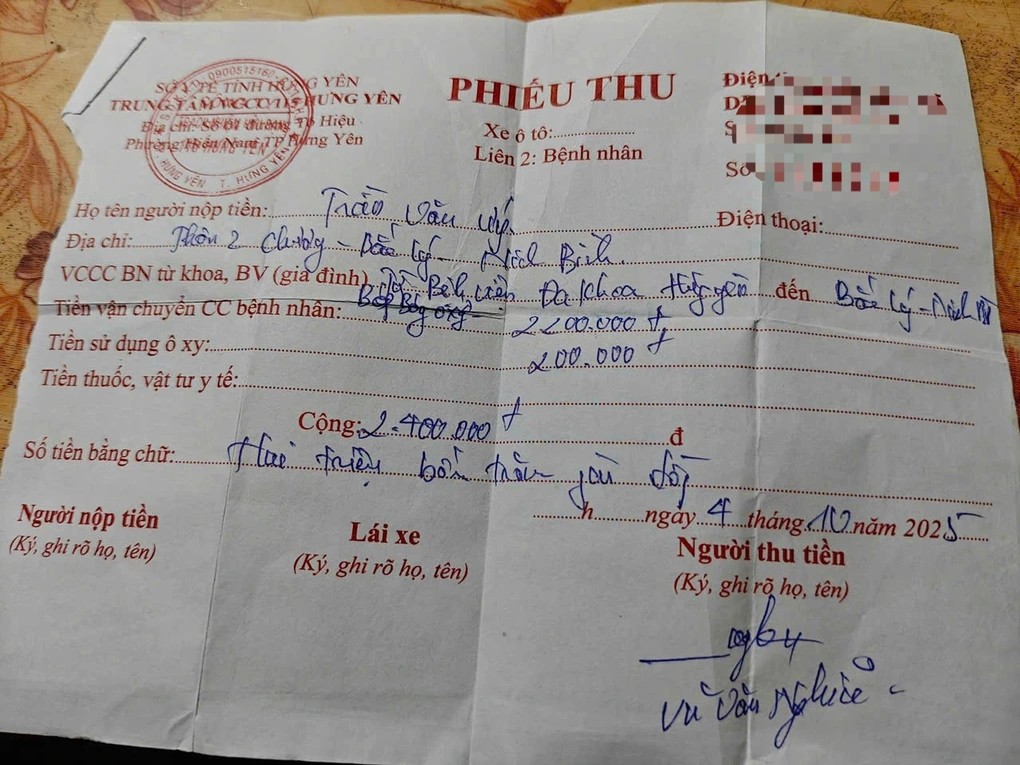 SỞ Y TẾ TỈNH HƯNG YÊN
TRUNG TÂM VCCC 115 HƯNG YÊN
Địa chỉ: Số 61 đường Tô Hiệu
Phường Hiến Nam TP Hưng Yên
0900515160
T. HƯNG YÊN
PHIẾU THU
Xe ô tô:
Liên 2: Bệnh nhân
Điện
Số
Họ tên người nộp tiền: Trần Văn Uý
Điện thoại:
Địa chỉ: Thôn 2 - Bắc Lý - Ninh Bình
VCCC BN từ khoa, BV (gia đình) Từ Bệnh viện Đa khoa Hưng yên đến Bắc Lý - Ninh
Tiền vận chuyển CC bệnh nhân: 2200.000 đ
Tiền sử dụng ô xy: 200.000 đ
Tiền thuốc, vật tư y tế:
Cộng: 2.400.000 đ đ
Số tiền bằng chữ: Hai triệu bốn trăm đồng
h ngày 4 tháng 10 năm 2025
Người nộp tiền
(Ký, ghi rõ họ, tên)
Lái xe
(Ký, ghi rõ họ, tên)
Người thu tiền
(Ký, ghi rõ họ, tên)
Vũ Văn